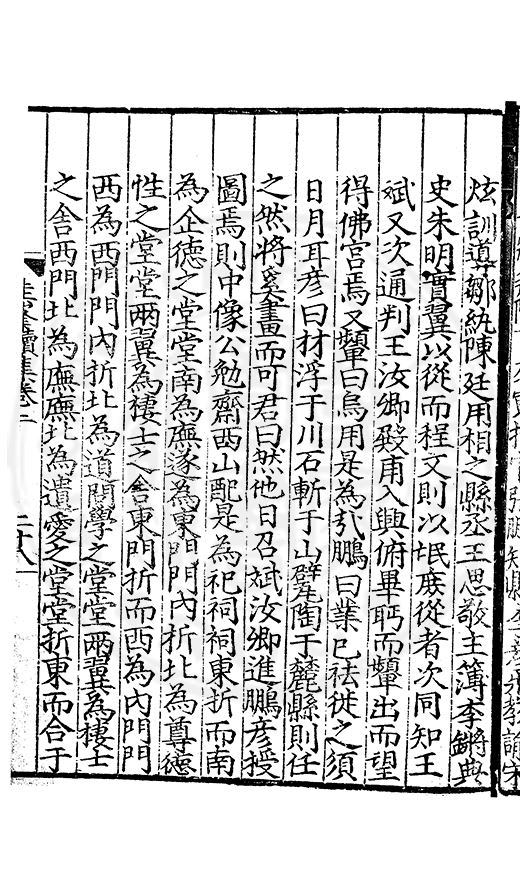 炫訓導鄒紈陳廷用相之縣丞王思敬主簿李鏘典
史朱明實翼以從而程文則以垊庪從者次同知王
斌又次通判王汝卿殹甫入輿俯畢眄而顰出而望
得佛宮焉又顰曰烏用是為㢧鵬曰業已祛徙之須
日月耳彥曰材浮于川石斬于山甓陶于麓縣則任
之然將奚畫而可君曰然他日召斌汝卿進鵬彥授
圖焉則中像公勉齋西山配是為祀祠祠東折而南
為企德之堂堂南為廡遂為東門門內折北為尊德
性之堂堂兩翼為棲士之舍東門折而西為內門門
西為西門門內折北為道問學之堂堂兩翼為棲士
之舍西門北為廡廡北為遺愛之堂堂折東而合于
二十八